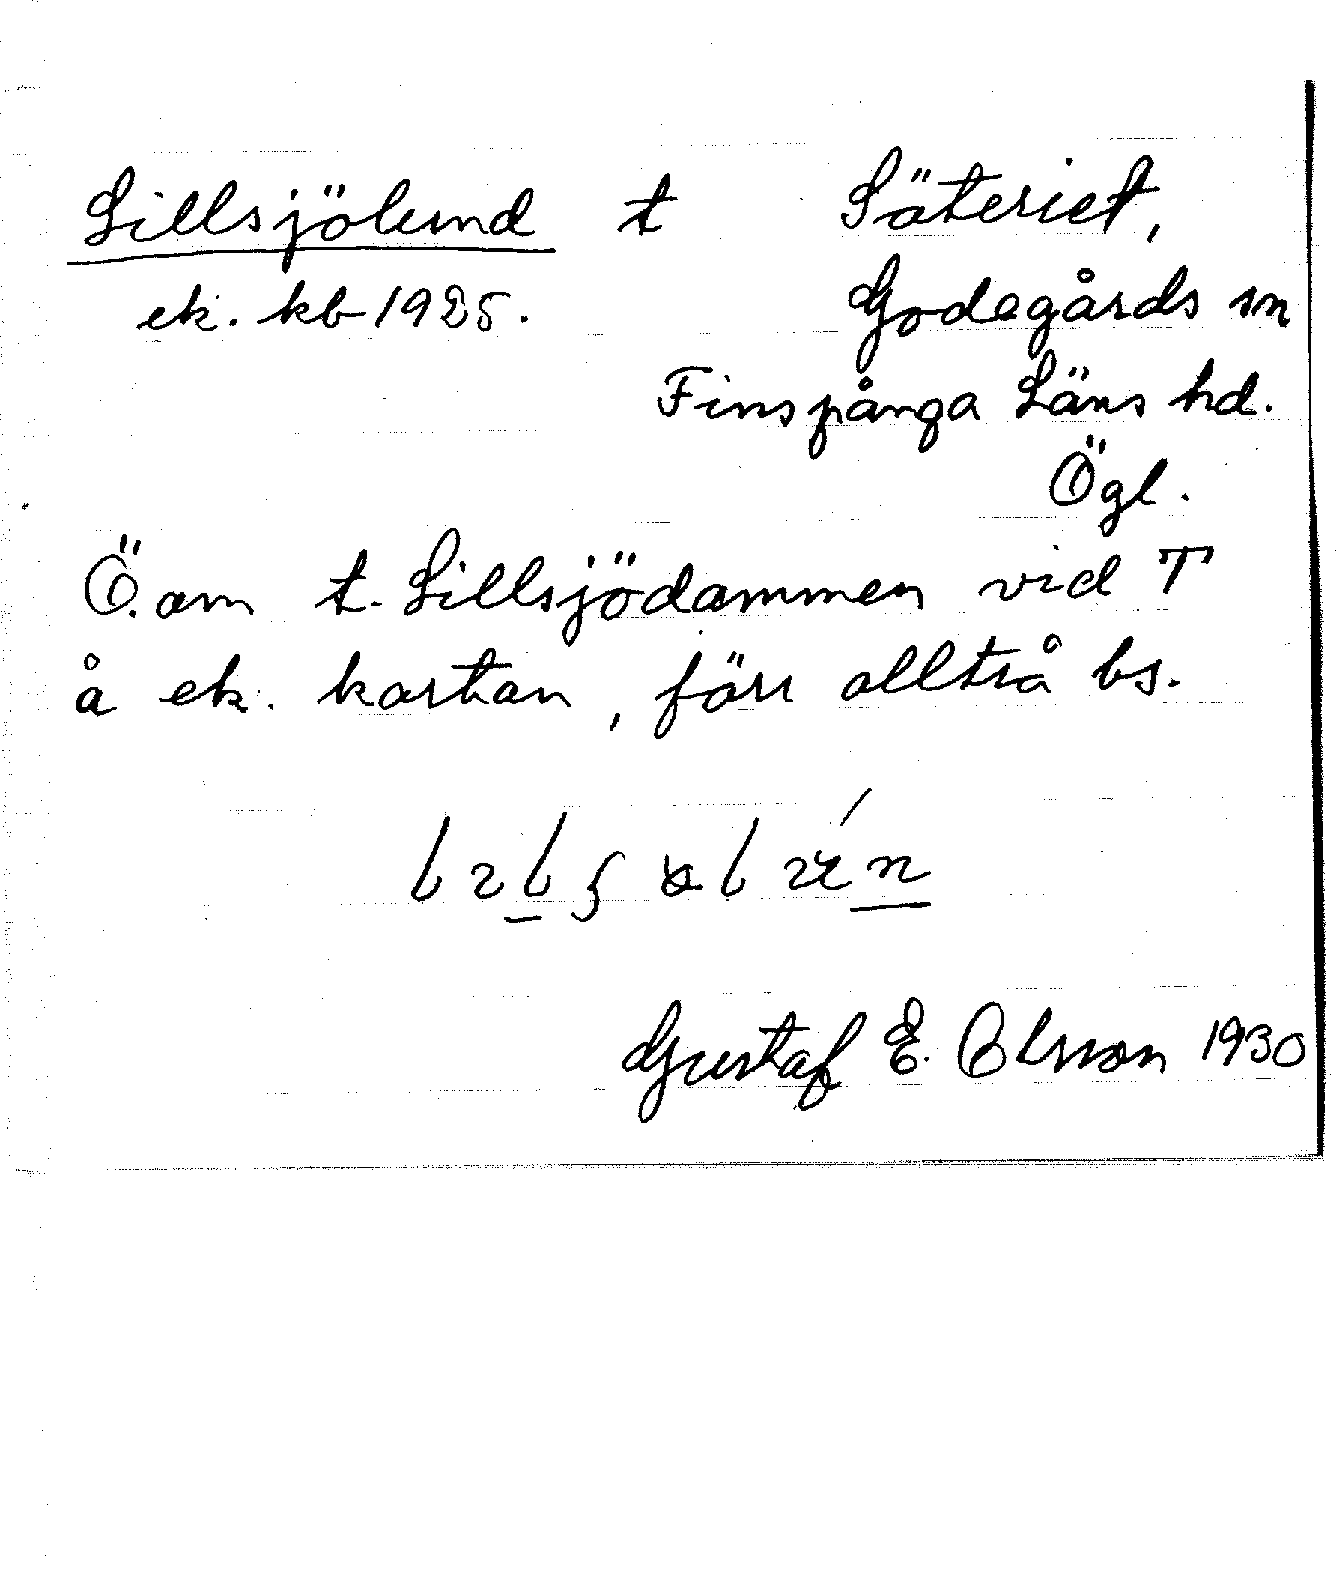 Lillsjölund t Säteriet,
ek. kb 1925. Godegårds sn
Finspånga Läns hd.
Ögl.
Ö. om t. Lillsjödammen vid T
å ek. kartan, förr alltså bs.
Gustaf E. Olsson 1930